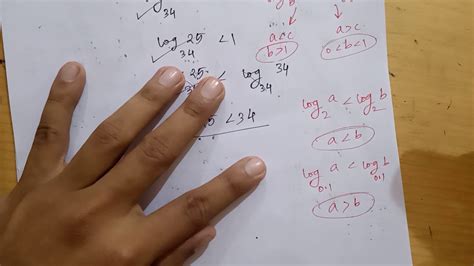 34
log₃₄ 25 < 1
25 < log₃₄ 34
5 < 34
b b
a<c a>c
b>1 0<b<1
log₂ a < log₂ b
a<b
log₀.₁ a < log₀.₁ b
a>b